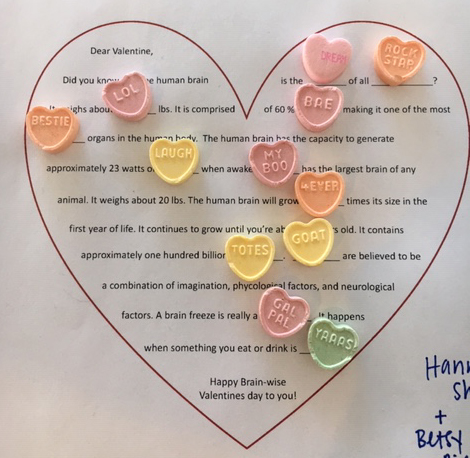 Dear Valentine,
DREAM
ROCK STAR
Did you know the human brain is the ____ of all ____?
LOL
It weighs about lbs. It is comprised of 60 % BAE making it one of the most
BESTIE
____ organs in the human body. The human brain has the capacity to generate
LAUGH
MY BOO
approximately 23 watts o when awake has the largest brain of any
4EVER
animal. It weighs about 20 lbs. The human brain will grow times its size in the
first year of life. It continues to grow until you're ab s old. It contains
TOTES
GOAT
approximately one hundred billion ____. ____ are believed to be
a combination of imagination, phycological factors, and neurological
GAL PAL
factors. A brain freeze is really a It happens
YAAAS
when something you eat or drink is ____
Happy Brain-wise
Valentines day to you!
Hann
Sh
+
Betsy